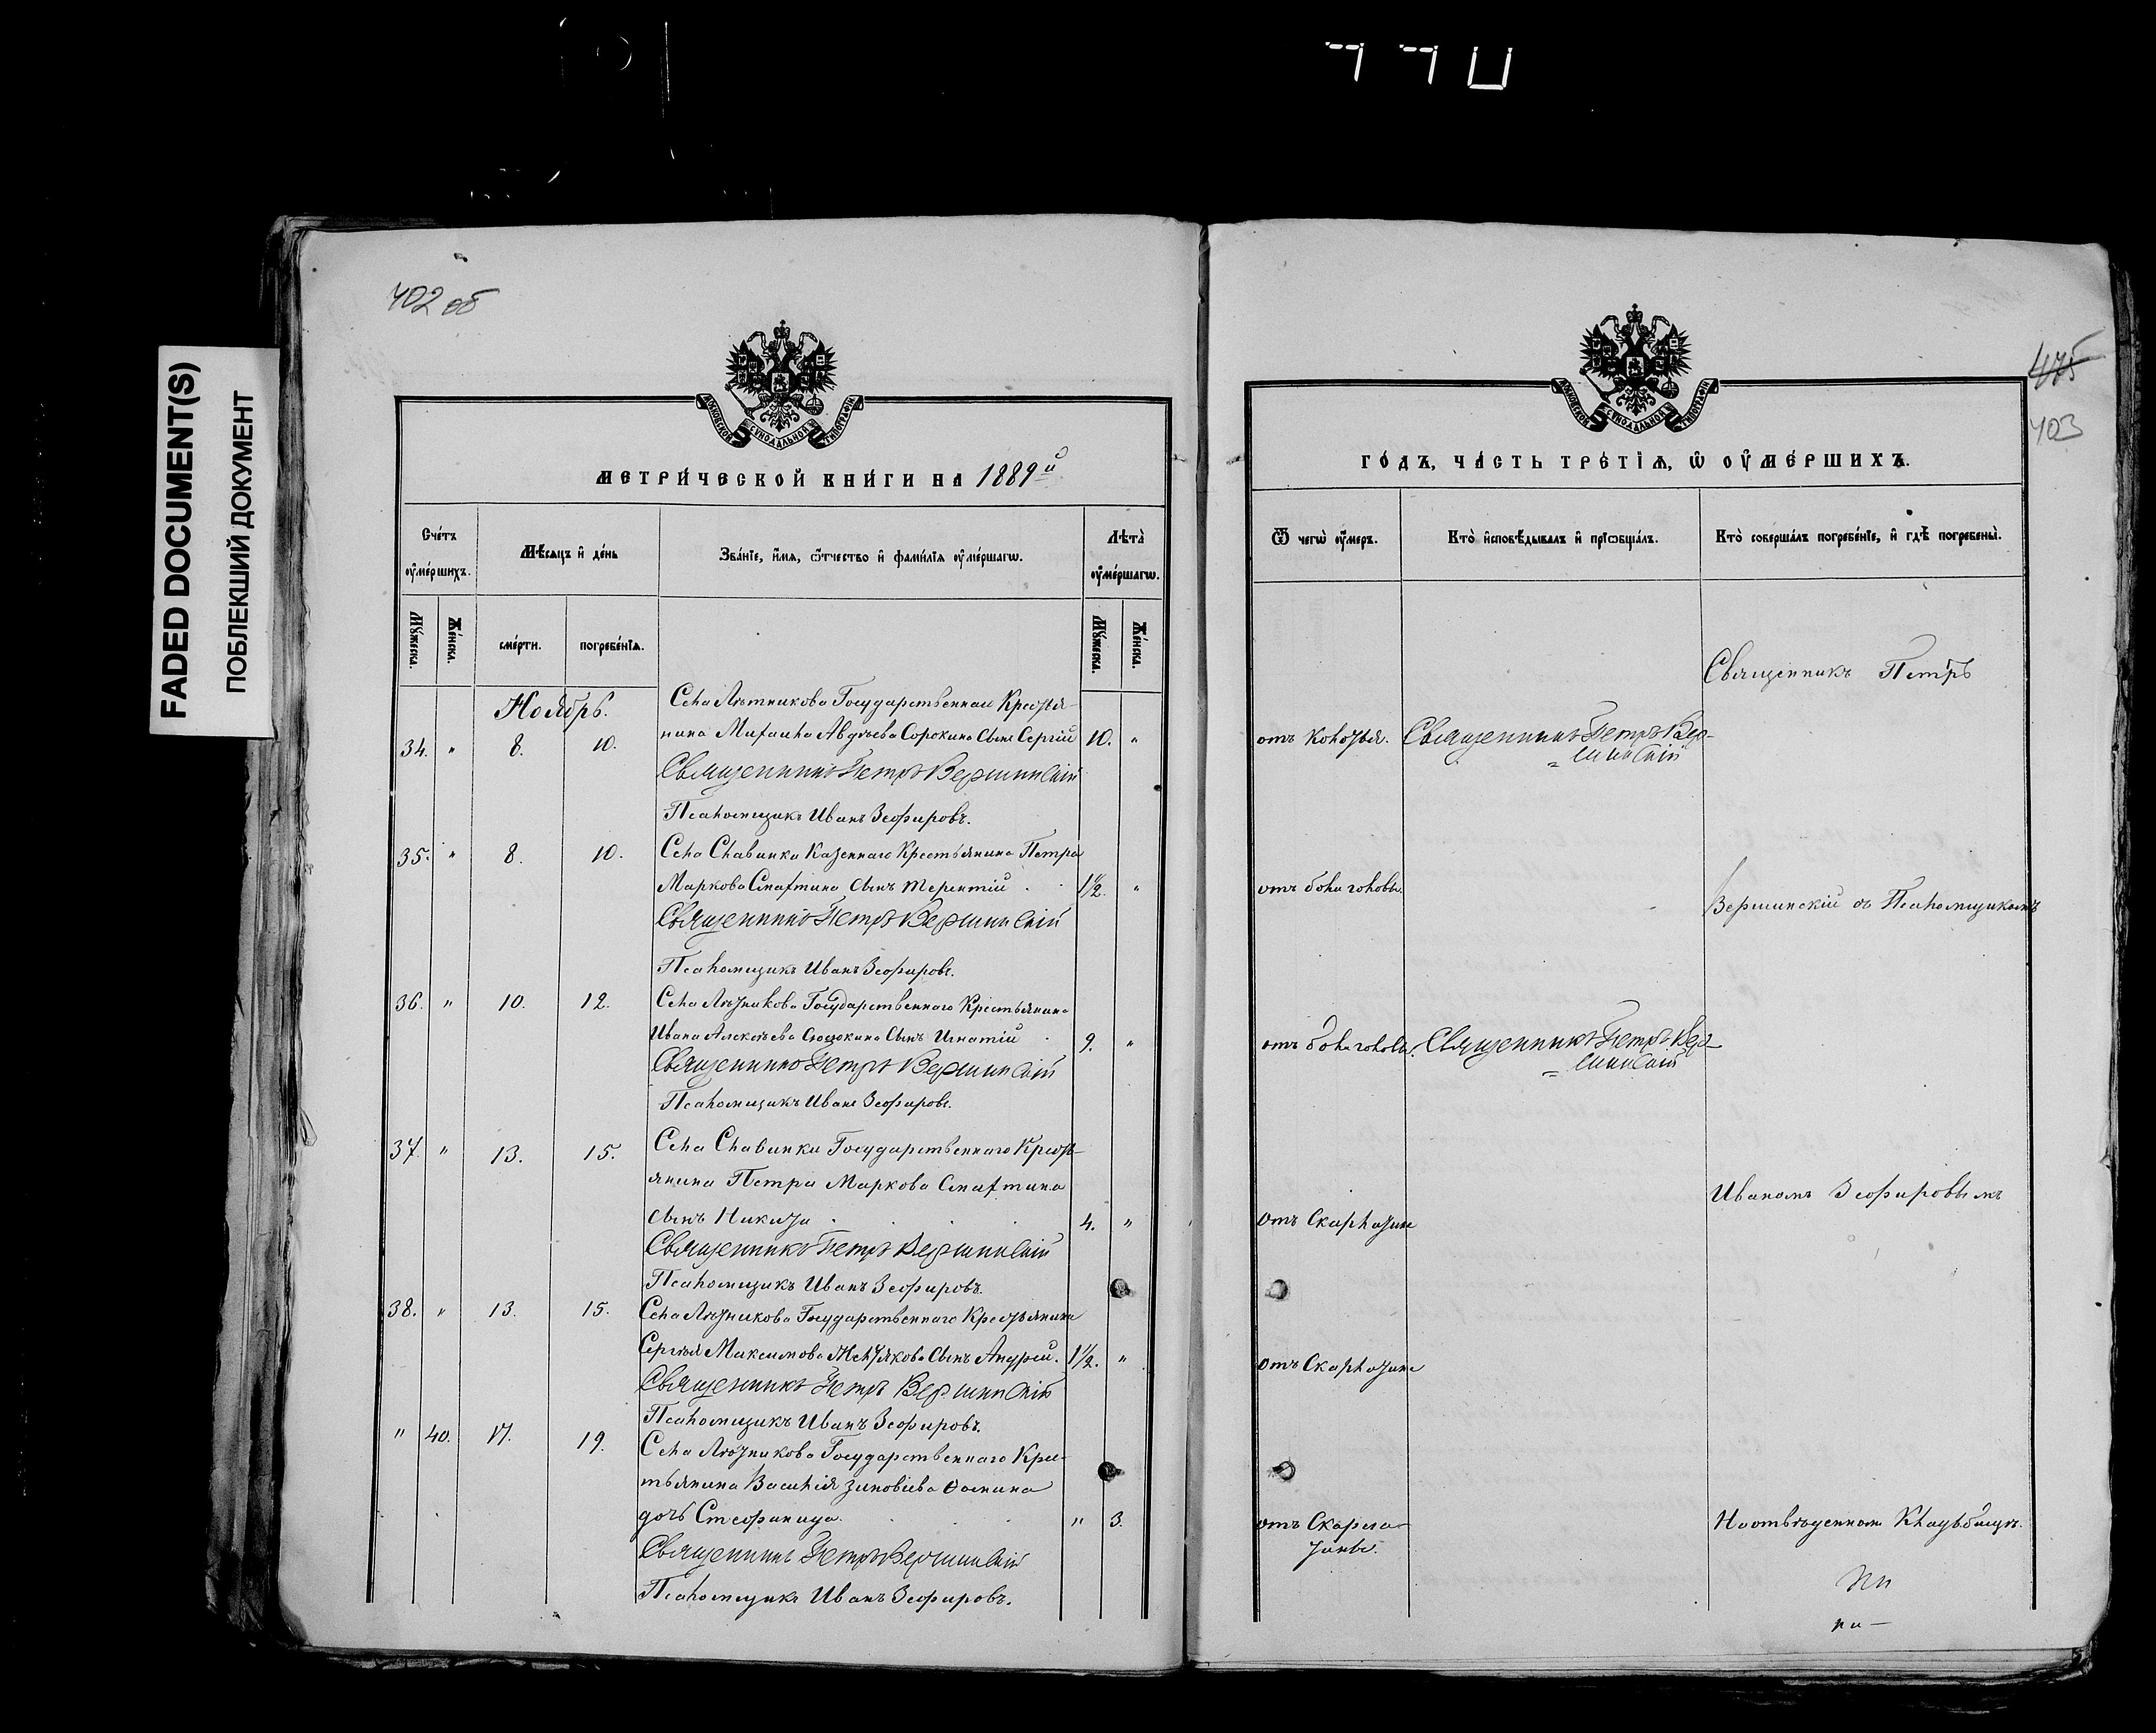 FADED DOCUMENT(S)
ПОБЛЕКШИЙ ДОКУМЕНТ
402 об
МОСКОВСКОЙ СѴНОДАЛЬНОЙ ТИПОГРАФІИ
МЕТРИ́ЧЕСКОЙ КНИ́ГИ НА 1889й
Сче́тъ оу҆ме́ршихъ.
Мѣ́сяцъ и҆ де́нь
Зва́нїе, и҆́мя, ѻ҆́тчество и҆ фами́лїя оу҆ме́ршагѡ.
Лѣта̀ оу҆ме́ршагѡ.
Мꙋ́жеска.
Же́нска.
сме́рти.
погребе́нїя.
Мꙋ́жеска.
Же́нска.
Ноябрь.
Села Лѣтникова Государственнаго Крестья-
34. " 8. 10. нина Михаила Авдѣева Сорокина Сынъ Сергій 10. "
Священникъ Петръ Вершинскій
Псаломщикъ Иванъ Зефировъ.
35. " 8. 10. Села Славинки Казеннаго Крестьянина Петра
Маркова сынъ Терентій 1½. "
Священникъ Петръ Вершинскій
Псаломщикъ Иванъ Зефировъ.
36. " 10. 12. Села Лѣтникова Государственнаго Крестьянина
Ивана Алексѣева Сынъ Игнатій 9. "
Священникъ Петръ Вершинскій
Псаломщикъ Иванъ Зефировъ.
37. " 13. 15. Села Славинки Государственнаго Кресть-
янина Петра Маркова
сынъ Никита 4. "
Священникъ Петръ Вершинскій
Псаломщикъ Иванъ Зефировъ.
38. " 13. 15. Села Лѣтникова Государственнаго Крестьянина
Сергѣя Максимова Желтякова Сынъ Андрей. 1½. "
Священникъ Петръ Вершинскій
Псаломщикъ Иванъ Зефировъ.
" 40. 17. 19. Села Лѣтникова Государственнаго Крес-
тьянина Василія Зиновіева Фомина
дочь Стефанида. " 3.
Священникъ Петръ Вершинскій
Псаломщикъ Иванъ Зефировъ.
475
403
МОСКОВСКОЙ СѴНОДАЛЬНОЙ ТИПОГРАФІИ
ГО́ДЪ, ЧА́СТЬ ТРЕ́ТЇЯ, Ѡ҆ ОУ҆МЕ́РШИХЪ.
Ѿ чегѡ̀ оу҆́меръ.
Кто̀ и҆сповѣ́дывалъ и҆ прїѡбща́лъ.
Кто̀ соверша́лъ погребе́нїе, и҆ гдѣ̀ погребены̀.
Священникъ Петръ
отъ колотья. Священникъ Петръ Вер-
= шинскій
отъ боли головы.
Вершинскій съ Псаломщикомъ
отъ боли головы. Священникъ Петръ Вер-
= шинскій
Иваномъ Зефировымъ
отъ Скарлатине
отъ Скарлатине
отъ Скарла-
тины.
На отведенномъ Кладбищѣ.